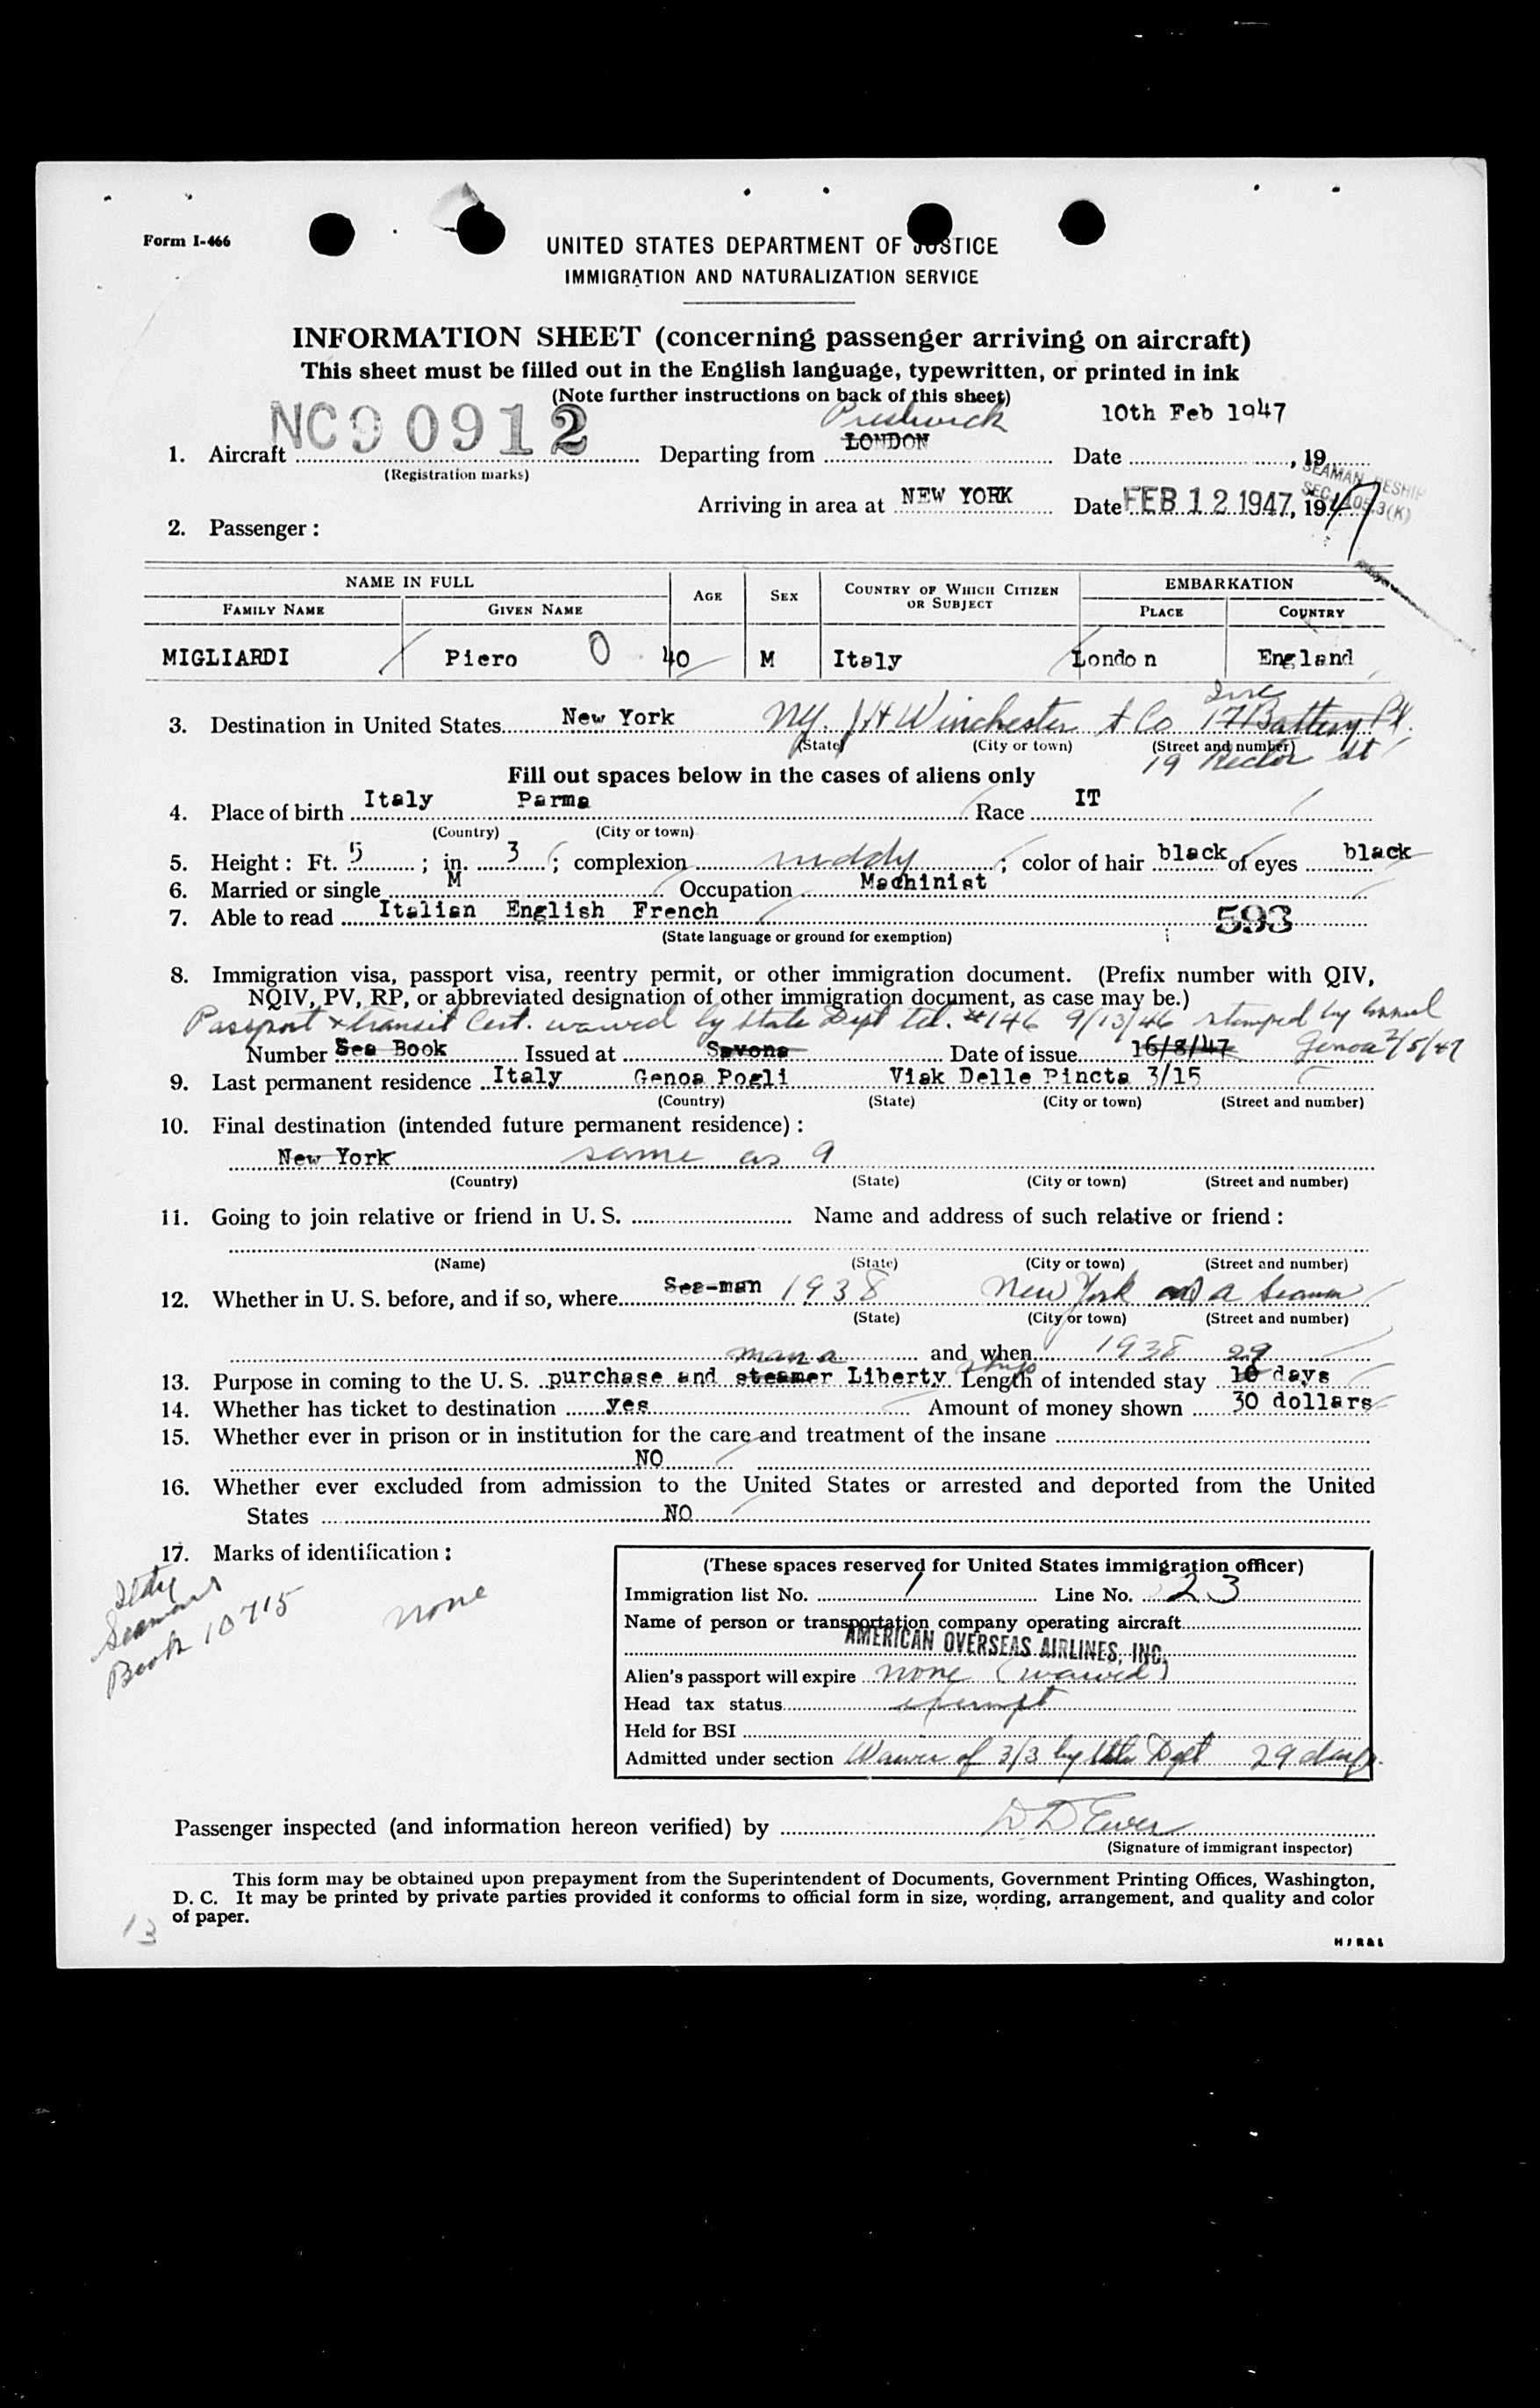 Form I-466
UNITED STATES DEPARTMENT OF JUSTICE
IMMIGRATION AND NATURALIZATION SERVICE
INFORMATION SHEET (concerning passenger arriving on aircraft)
This sheet must be filled out in the English language, typewritten, or printed in ink
(Note further instructions on back of this sheet)
Prestwick 10th Feb 1947
1. Aircraft NC90912 Departing from LONDON Date , 19
(Registration marks)
SEAMAN RESHIP
SEC. 105.3(K)
Arriving in area at NEW YORK Date FEB 12 1947, 1947
2. Passenger :
NAME IN FULL AGE SEX COUNTRY OF WHICH CITIZEN OR SUBJECT EMBARKATION
FAMILY NAME GIVEN NAME PLACE COUNTRY
MIGLIARDI Piero 0 40 M Italy London England
3. Destination in United States New York NY. J H Winchester & Co Inc 17 Battery Pl.
(State) (City or town) (Street and number)
19 Rector St
Fill out spaces below in the cases of aliens only
4. Place of birth Italy Parma Race IT
(Country) (City or town)
5. Height : Ft. 5 ; in. 3 ; complexion ruddy ; color of hair black of eyes black
6. Married or single M Occupation Machinist
7. Able to read Italian English French 593
(State language or ground for exemption)
8. Immigration visa, passport visa, reentry permit, or other immigration document. (Prefix number with QIV,
NQIV, PV, RP, or abbreviated designation of other immigration document, as case may be.)
Passport & transit Cert. waived by State Dept tel. #146 9/13/46 stamped by Consul
Genoa 2/5/47
Number Sea Book Issued at Savona Date of issue 16/8/47
9. Last permanent residence Italy Genoa Pogli Viak Delle Pincta 3/15
(Country) (State) (City or town) (Street and number)
10. Final destination (intended future permanent residence) :
New York same as 9
(Country) (State) (City or town) (Street and number)
11. Going to join relative or friend in U. S. Name and address of such relative or friend :
(Name) (State) (City or town) (Street and number)
12. Whether in U. S. before, and if so, where Sea-man 1938 New York as a seaman
(State) (City or town) (Street and number)
man a and when 1938 29
ships
13. Purpose in coming to the U. S. purchase and steamer Liberty Length of intended stay 10 days
14. Whether has ticket to destination yes Amount of money shown 30 dollars
15. Whether ever in prison or in institution for the care and treatment of the insane
NO
16. Whether ever excluded from admission to the United States or arrested and deported from the United
States NO
17. Marks of identification :
none
Italy
Seamans
Book 10715
(These spaces reserved for United States immigration officer)
Immigration list No. 1 Line No. 23
Name of person or transportation company operating aircraft
AMERICAN OVERSEAS AIRLINES, INC.
Alien's passport will expire none (waived)
Head tax status exempt
Held for BSI
Admitted under section Waiver of 3/3 by State Dept 29 days.
Passenger inspected (and information hereon verified) by D. D Ewer
(Signature of immigrant inspector)
This form may be obtained upon prepayment from the Superintendent of Documents, Government Printing Offices, Washington,
D. C. It may be printed by private parties provided it conforms to official form in size, wording, arrangement, and quality and color
of paper.
13